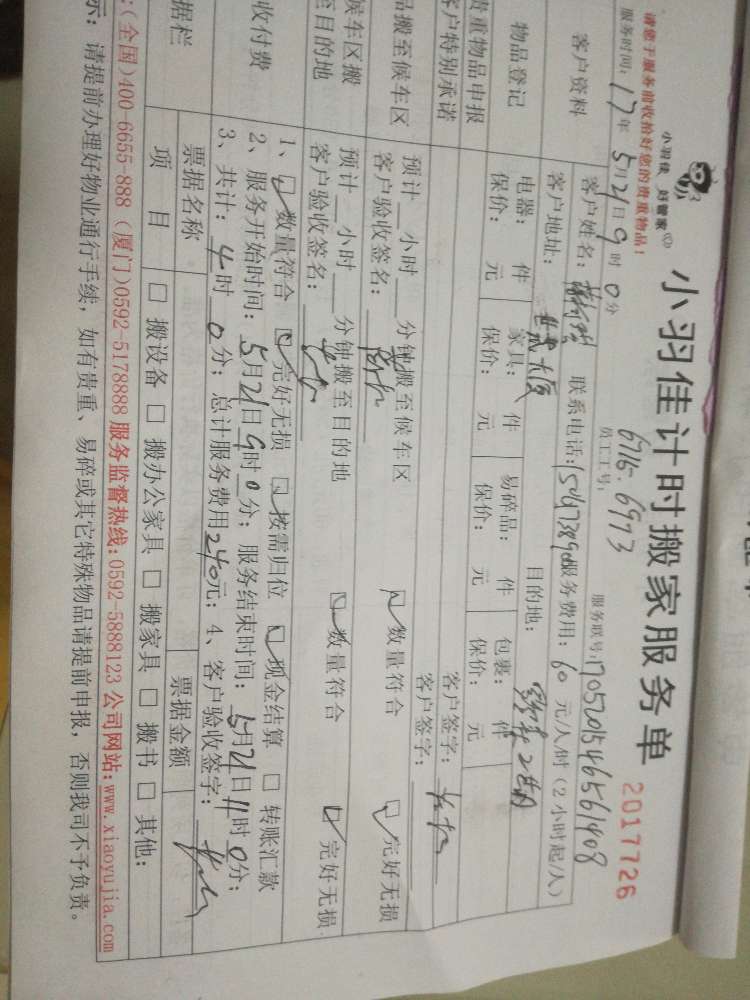 小羽佳 好管家
小羽佳计时搬家服务单
2017726
请您于服务前收拾好您的贵重物品！
6716.6973
员工工号：
服务联号：17052015465561408
服务时间：17年5月21日9时0分
客户资料
客户姓名： 联系电话： 服务费用：60元/人/时（2小时起/人）
客户地址： 世贸大厦 目的地：
物品登记
电器： 件 家具： 件 易碎品： 件 包裹： 件
保价： 元 保价： 元 保价： 元 保价： 元
贵重物品申报 客户签字：
客户特别承诺 客户签字：
品搬至候车区
预计 小时 分钟搬至候车区 数量符合 完好无损
客户验收签名：
候车区搬
至目的地
预计 小时 分钟搬至目的地 数量符合 完好无损
客户验收签名：
收付费
1、 数量符合 完好无损 按需归位 现金结算 转账汇款
2、服务开始时间：5月21日9时0分；服务结束时间：5月21日11时0分；
3、共计：4时0分；总计服务费用240元；4、客户验收签字：
据栏
票据名称 票据金额
项 目 搬设备 搬办公家具 搬家具 搬书 其他：
：(全国)400-6655-888（厦门)0592-5178888 服务监督热线:0592-5888123 公司网站:www.xiaoyujia.com
示：请提前办理好物业通行手续，如有贵重、易碎或其它特殊物品请提前申报，否则我司不予负责。